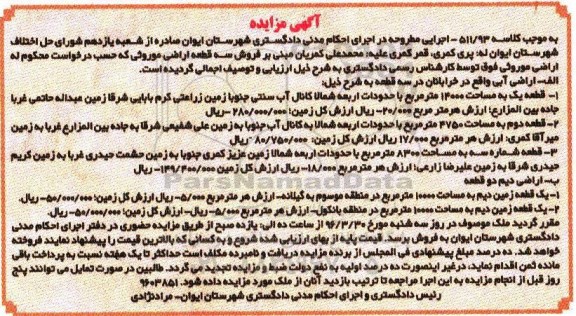 آگهی مزایده
به موجب کلاسه ۵۱۱/۹۳ - اجرایی مطروحه در اجرای احکام مدنی دادگستری شهرستان ایوان صادره از شعبه یازدهم شورای حل اختلاف
شهرستان ایوان له: پری کمری، قمر کمری علیه: محمدعلی کمریان مبنی بر فروش سه قطعه اراضی موروثی که حسب درخواست محکوم له
اراضی موروثی فوق توسط کارشناس رسمی دادگستری به شرح ذیل ارزیابی و توصیف اجمالی گردیده است.
الف- اراضی آبی واقع در خرابانان در سه قطعه به شرح ذیل:
۱- قطعه یک به مساحت ۱۴۰۰۰ مترمربع با حدودات اربعه شمالا کانال آب سنتی جنوبا زمین زراعتی کرم بابایی شرقا زمین عبداله حاتمی غربا
جاده بین المزارع: ارزش هرمتر مربع ۲۰/۰۰۰- ریال ارزش کل زمین: ۲۸۰/۰۰۰/۰۰۰- ریال
۲- قطعه دوم به مساحت ۴۷۵۰ مترمربع با حدودات اربعه شمالا به کانال آب جنوبا به زمین علی شفیعی شرقا به جاده بین المزارع غربا به زمین
میرآقا کمری: ارزش هر مترمربع ۱۷/۰۰۰ ریال ارزش کل زمین: ۸۰/۷۵۰/۰۰۰- ریال
۳- قطعه شماره سه به مساحت ۸۳۰۰ مترمربع با حدودات اربعه شمالا زمین عزیز کمری جنوبا به زمین حشمت حیدری غربا به زمین کریم
حیدری شرقا به زمین علیرضا زارعی: ارزش هر مترمربع ۱۸/۰۰۰- ریال ارزش کل زمین ۱۴۷/۴۰۰/۰۰۰- ریال.
ب- اراضی دیم دو قطعه
۱- یک قطعه زمین دیم به مساحت ۱۰۰۰۰ مترمربع در منطقه موسوم به گیلانه- ارزش هر مترمربع ۵/۰۰۰- ریال ارزش کل زمین: ۵۰/۰۰۰/۰۰۰- ریال.
۲- یک قطعه زمین دیم به مساحت ۱۰۰۰۰ مترمربع در منطقه بانکول- ارزش هر مترمربع ۵/۰۰۰- ریال- ارزش کل زمین: ۵۰/۰۰۰/۰۰۰- ریال.
مقرر گردید ملک موصوف در روز سه شنبه مورخ ۹۶/۳/۳۰ از ساعت ده الی: یازده صبح از طریق مزایده حضوری در دفتر اجرای احکام مدنی
دادگستری شهرستان ایوان به فروش برسد. قیمت پایه از بهای ارزیابی شده شروع و به کسانی که بالاترین قیمت را پیشنهاد نمایند فروخته
خواهد شد. ده درصد مبلغ پیشنهادی فی المجلس از برنده مزایده دریافت و نامبرده مکلف است حداکثر تا یک هفته نسبت به پرداخت باقی
مانده ثمن اقدام نماید، درغیر اینصورت ده درصد اولیه به نفع دولت ضبط و مزایده تجدید می گردد. طالبین در صورت تمایل می توانند پنج
روز قبل از انجام مزایده به این اجرا مراجعه تا ترتیب بازدید آنان از ملک مورد مزایده داده شود. ۹۶۰۳۸۵۱
رئیس دادگستری و اجرای احکام مدنی دادگستری شهرستان ایوان- مرادنژادی
ParsNamadData